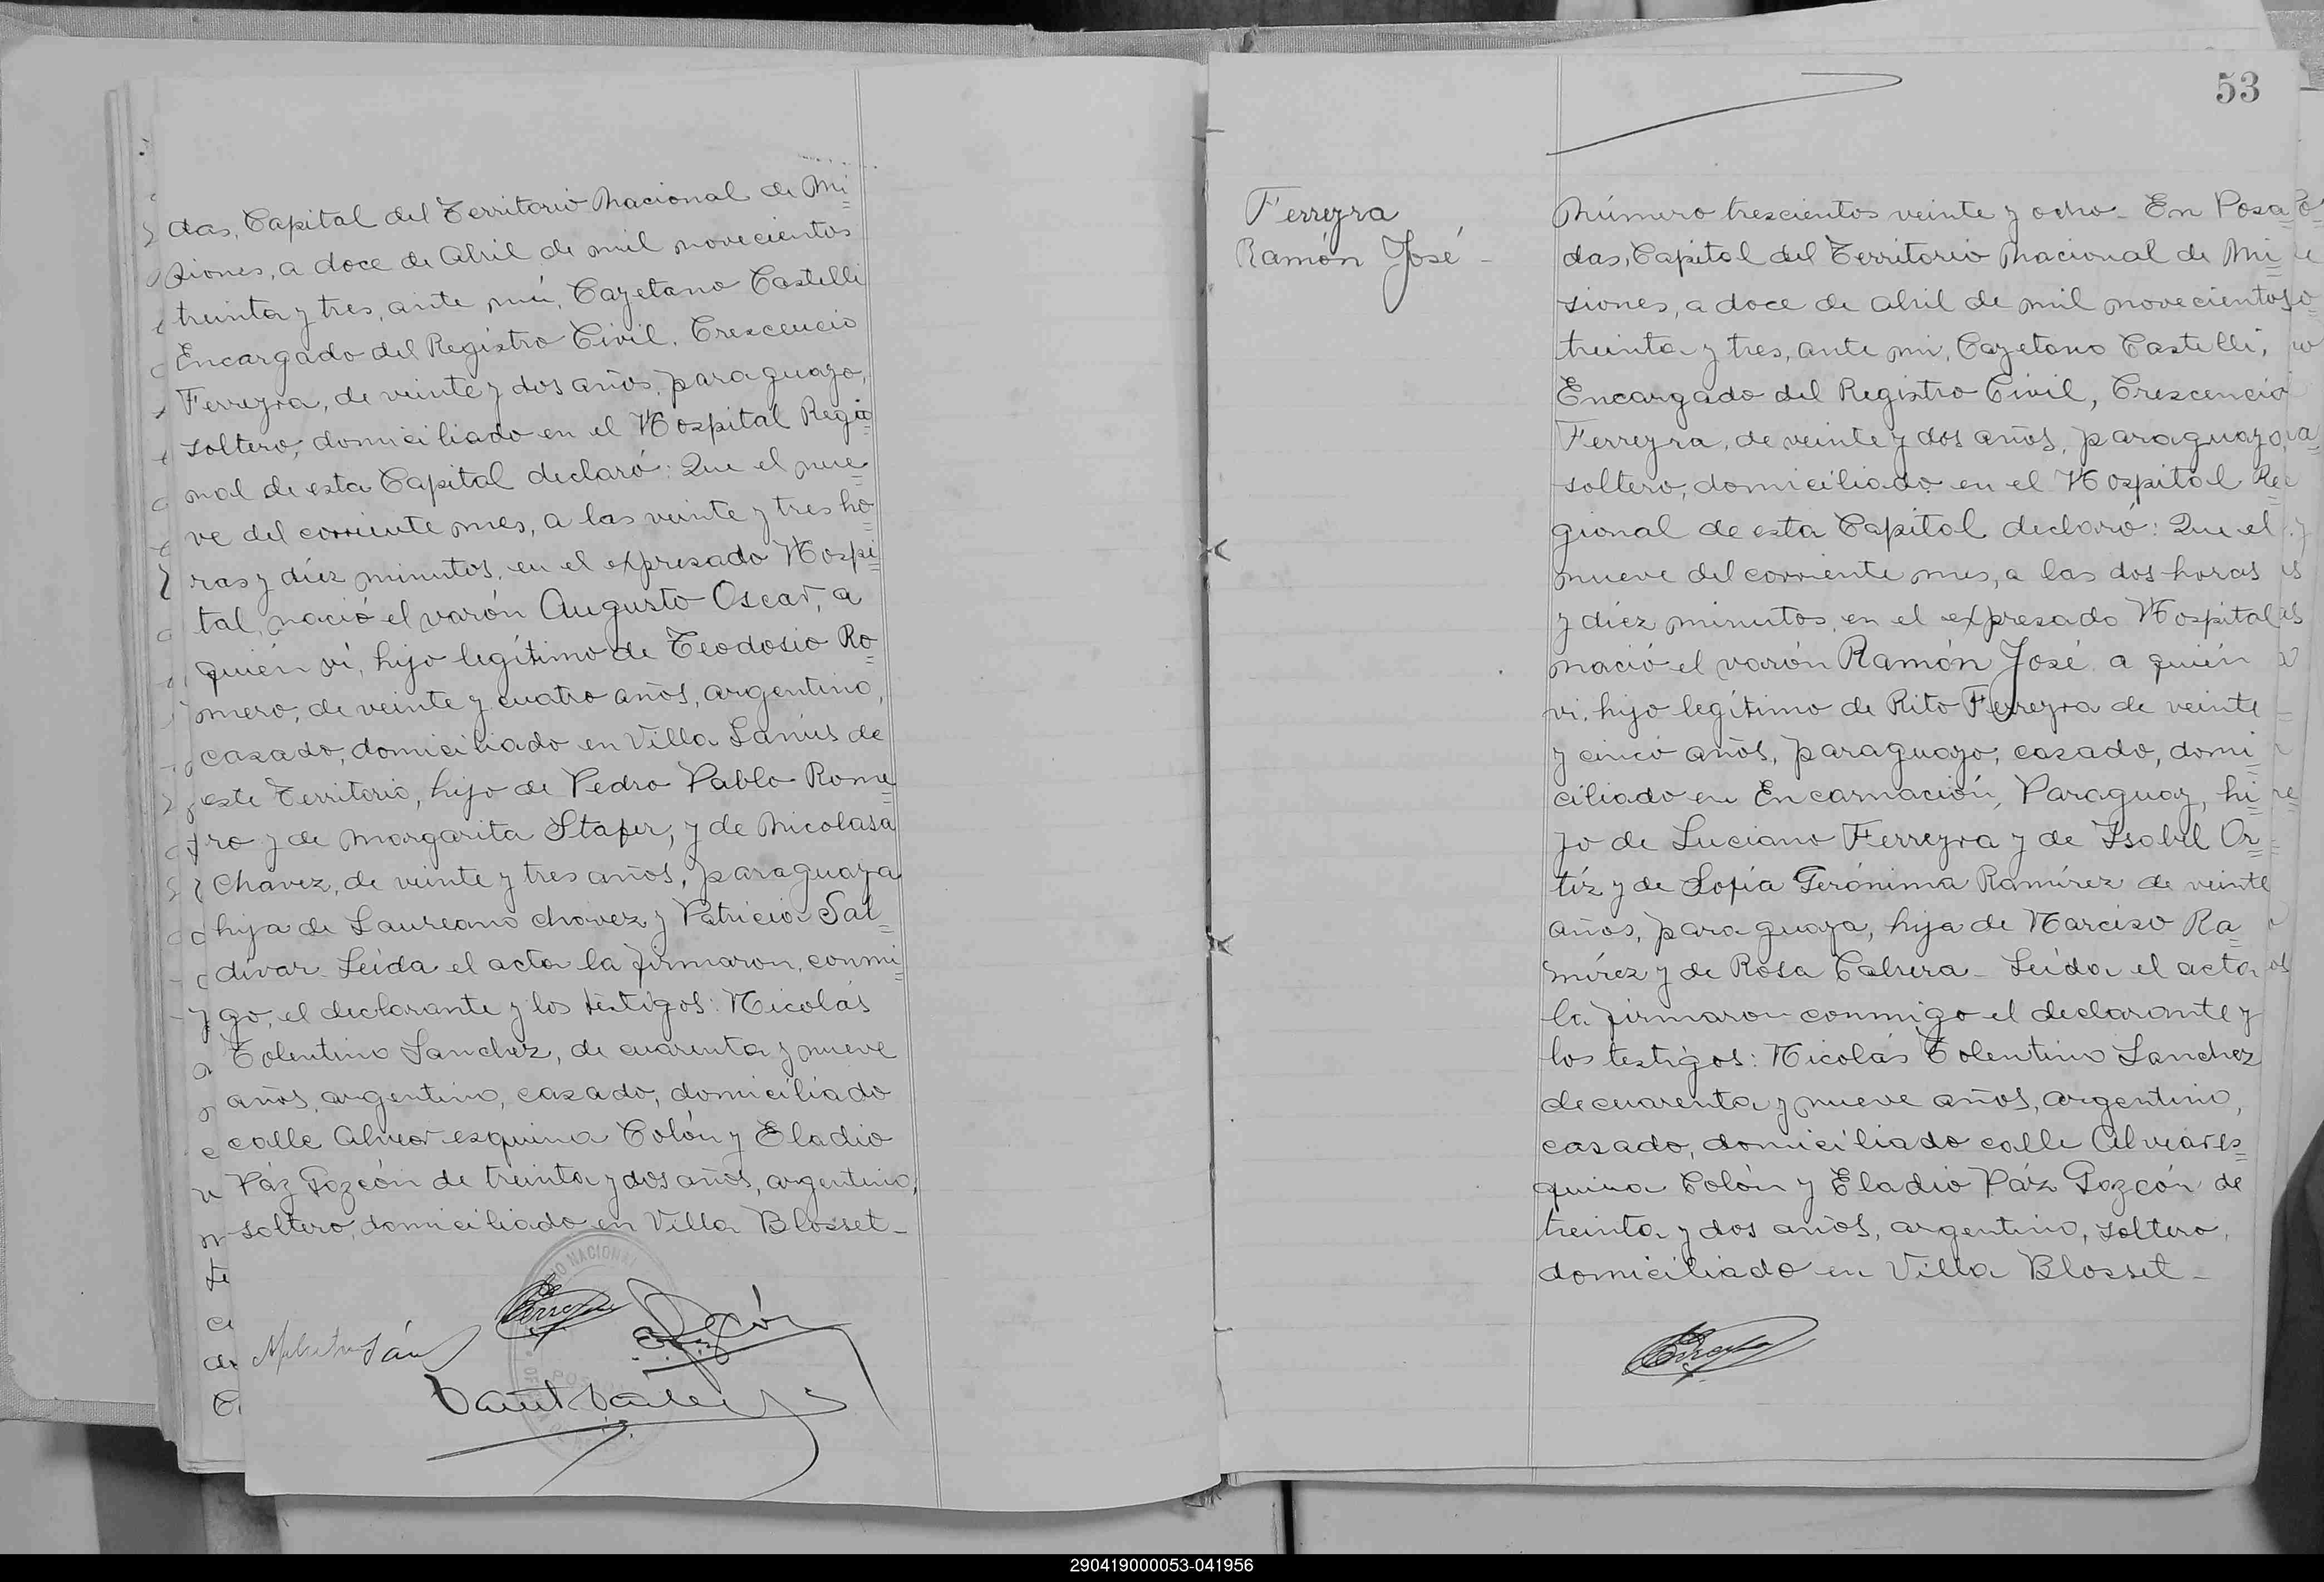 das, Capital del Territorio Nacional de Mi=
siones, a doce de Abril de mil novecientos
treinta y tres, ante mí, Cayetano Castelli
Encargado del Registro Civil, Crescencio
Ferreyra, de veinte y dos años, paraguayo,
soltero, domiciliado en el Hospital Regio=
nal de esta Capital declaró: Que el nue=
ve del corriente mes, a las veinte y tres ho=
ras y diez minutos, en el expresado Hospi=
tal, nació el varón Augusto Oscar, a
quién ví, hijo legítimo de Teodosio Ro=
mero, de veinte y cuatro años, argentino,
casado, domiciliado en Villa Lanús de
este Territorio, hijo de Pedro Pablo Rome=
ro y de Margarita Stafer, y de Nicolasa
Chávez, de veinte y tres años, paraguaya
hija de Laureano Chavez y Patricia Sal=
divar. Leída el acta la firmaron, conmi=
go, el declarante y los testigos: Nicolás
Tolentino Sanchez, de cuarenta y nueve
años, argentino, casado, domiciliado
calle Alvear esquina Colón y Eladio
Páz Gozcón de treinta y dos años, argentino,
soltero, domiciliado en Villa Blosset-
53
Ferreyra
Ramón José -
Número trescientos veinte y ocho - En Posa=
das, Capital del Territorio Nacional de Mi=
siones, a doce de Abril de mil novecientos
treinta y tres, ante mi, Cayetano Castelli,
Encargado del Registro Civil, Crescencio
Ferreyra, de veinte y dos años, paraguayo,
soltero, domiciliado en el Hospital Re=
gional de esta Capital declaró: Que el
nueve del corriente mes, a las dos horas
y diez minutos, en el expresado Hospital
nació el varón Ramón José a quién
vi, hijo legítimo de Rito Ferreyra de veinte
y cinco años, paraguayo, casado, domi=
ciliado en Encarnación, Paraguay, hi=
jo de Luciano Ferreyra y de Isabel Or=
tíz y de Sofía Gerónima Ramírez de veinte
años, paraguaya, hija de Narciso Ra=
mírez y de Rosa Cabrera - Leída el acta
la firmaron conmigo el declarante y
los testigos: Nicolás Tolentino Sanchez
de cuarenta y nueve años, argentino,
casado, domiciliado calle Alvear es=
quina Colón y Eladio Páz Gozcón de
treinta y dos años, argentino, soltero,
domiciliado en Villa Blosset -
290419000053-041956